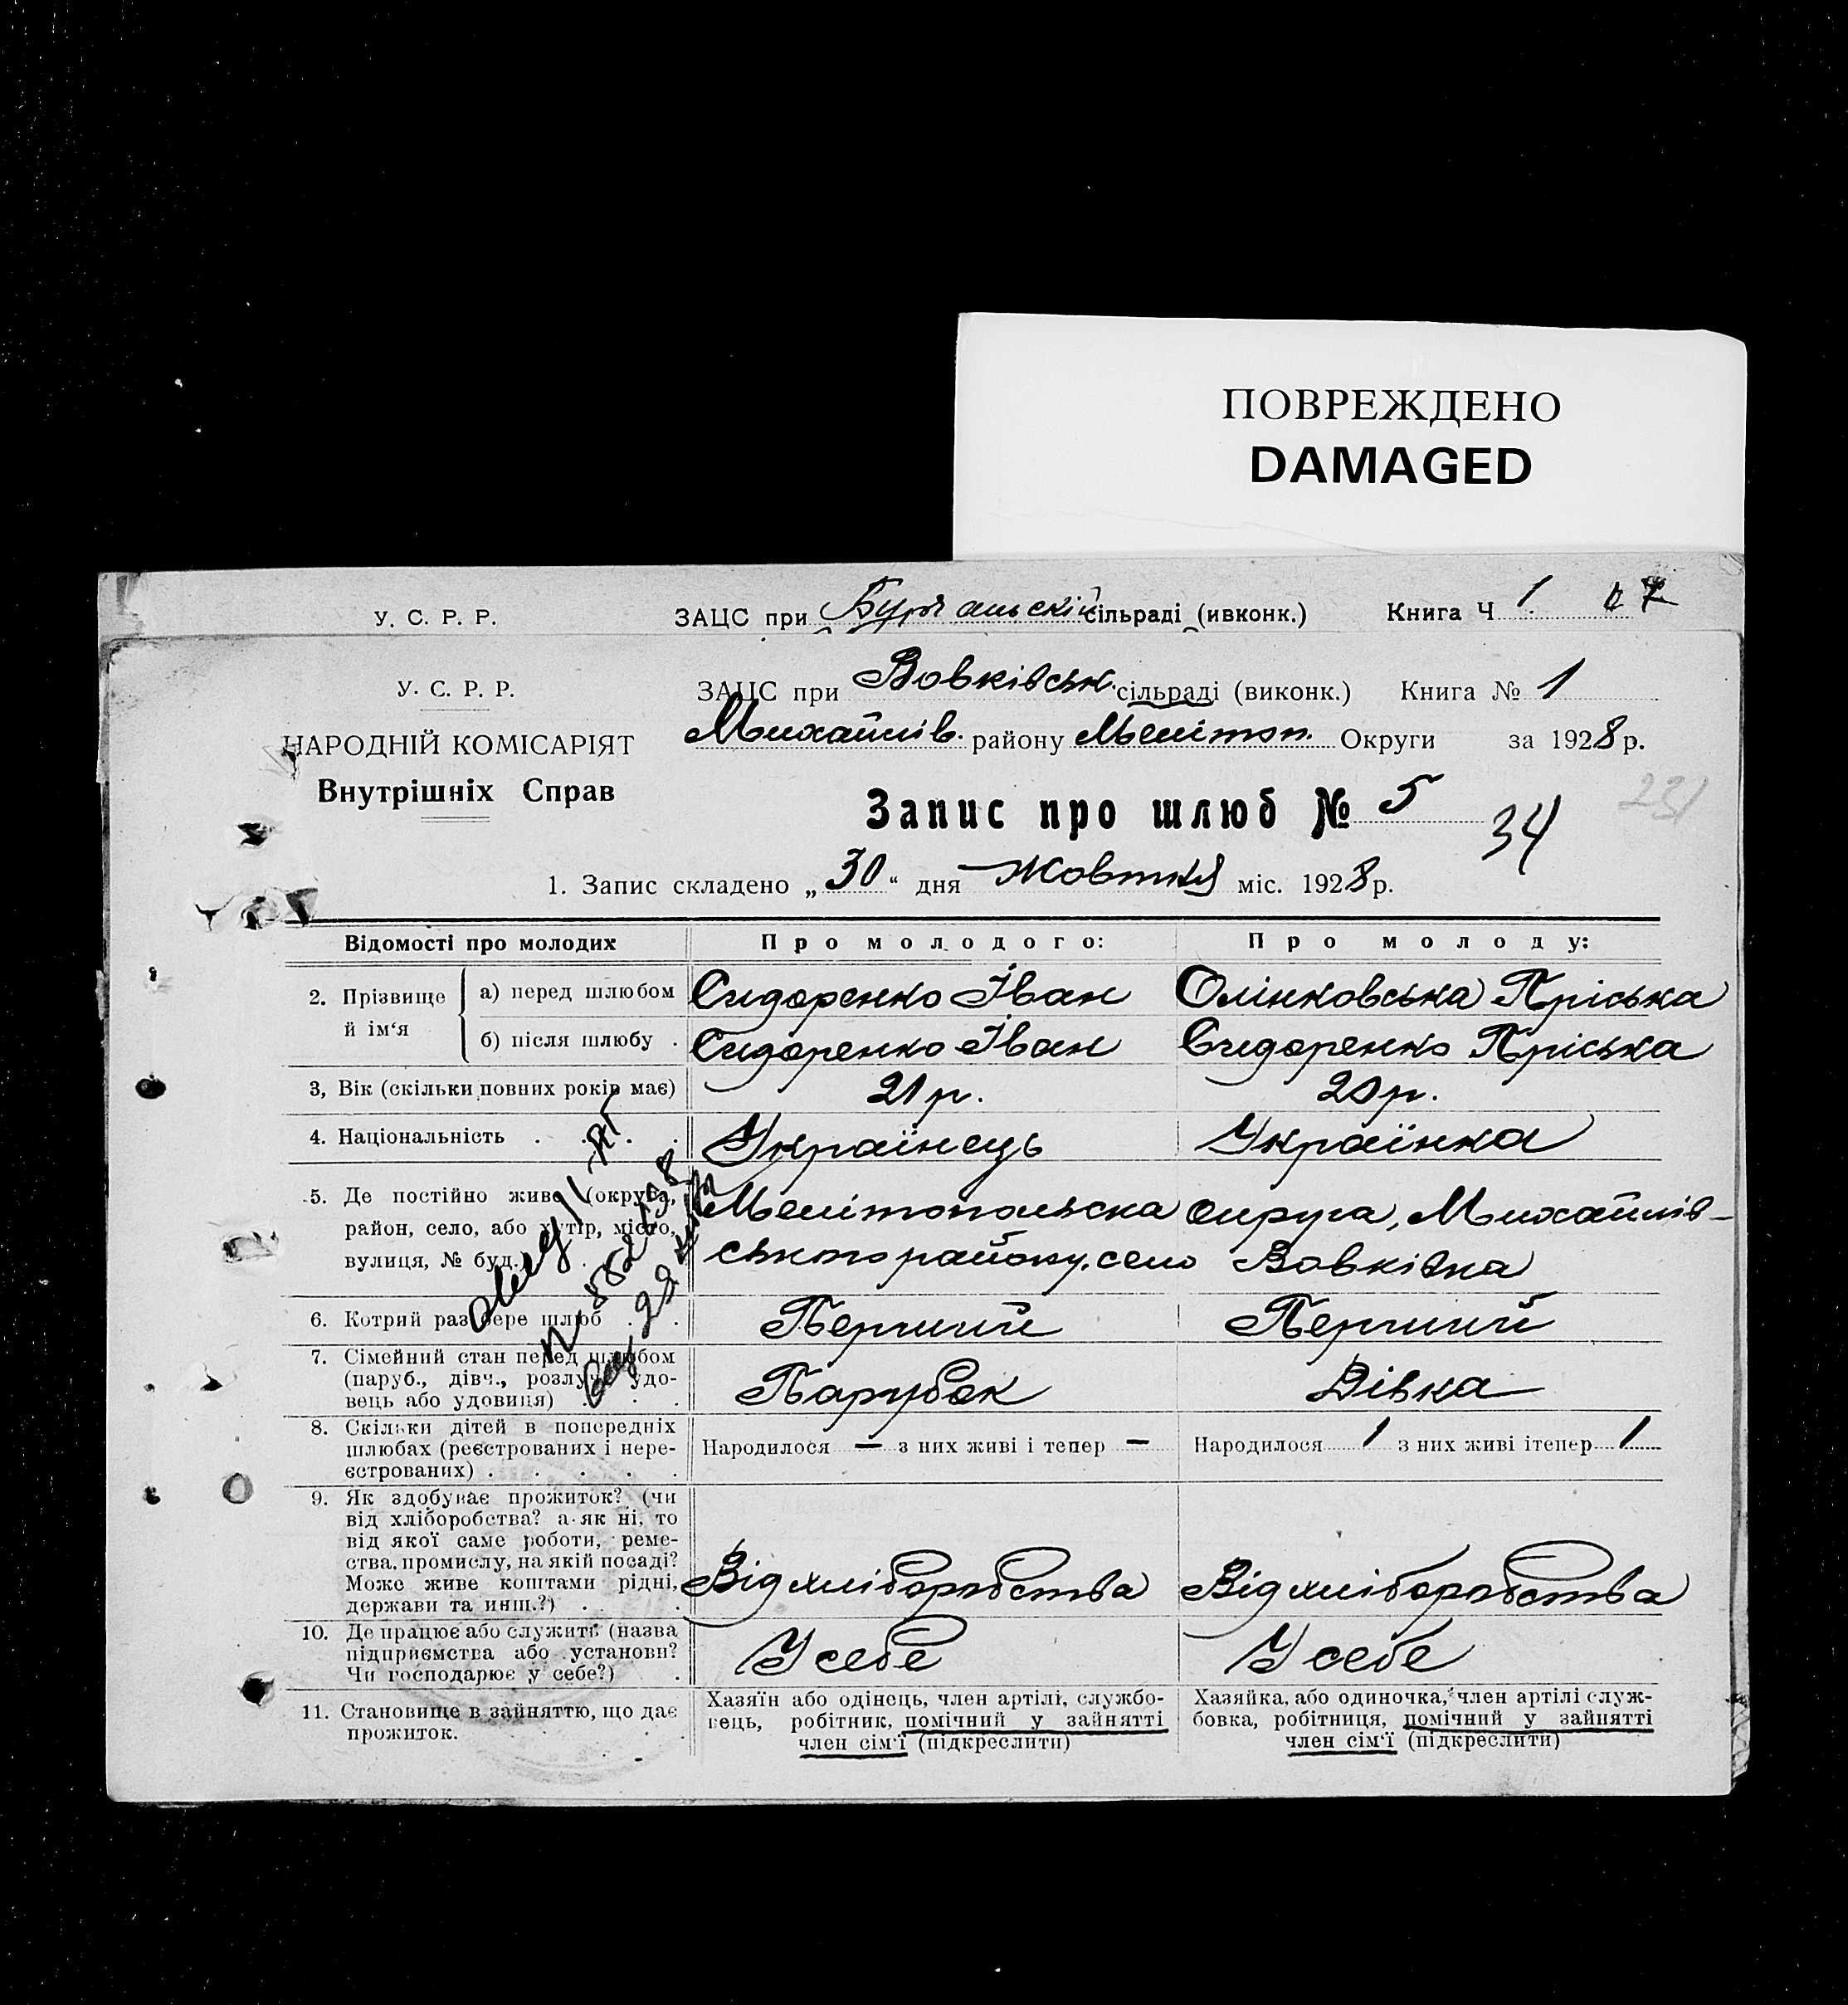 ПОВРЕЖДЕНО
DAMAGED
У. С. Р. Р. ЗАЦС при сільраді (ивконк.) Книга Ч 1
У. С. Р. Р. ЗАЦС при Вовківськ. сільраді (виконк.) Книга № 1
НАРОДНІЙ КОМІСАРІЯТ Михайлів. району Мелітоп. Округи за 1928 р.
Внутрішніх Справ
Запис про шлюб № 5
34
231
1. Запис складено „30“ дня Жовтня міс. 1928 р.
Відомості про молодих Про молодого: Про молоду:
2. Прізвище й ім‘я а) перед шлюбом Сидоренко Іван Олінковська Пріська
б) після шлюбу . Сидоренко Іван Сидоренко Пріська
3, Вік (скільки повних років має) 21 р. 20 р.
4. Національність . . . . Українець Українка
5. Де постійно живе (округа, Мелітопольска округа, Михайлів-
район, село, або хутір, місто, ського району, село Вовківка
вулиця, № буд.)
6. Котрий раз бере шлюб . . Перший Перший
7. Сімейний стан перед шлюбом
(паруб., дівч., розлуч., удо- Парубок Дівка
вець або удовиця) . . .
8. Скільки дітей в попередніх
шлюбах (реєстрованих і нере- Народилося — з них живі і тепер — Народилося 1 з них живі ітепер 1
єстрованих) . . . . .
9. Як здобуває прожиток? (чи
від хліборобства? а як ні, то
від якої саме роботи, реме-
ства, промислу, на якій посаді?
Може живе коштами рідні, Від хліборобства Від хліборобства
держави та инш.?) . .
10. Де працює або служить (назва
підприємства або установи? У себе У себе
Чи господарює у себе?) .
11. Становище в зайняттю, що дає
прожиток.
Хазяїн або одінець, член артілі, службо-
вець, робітник, помічний у зайнятті
член сім‘ї (підкреслити)
Хазяйка, або одиночка, член артілі служ-
бовка, робітниця, помічний у зайнятті
член сім‘ї (підкреслити)